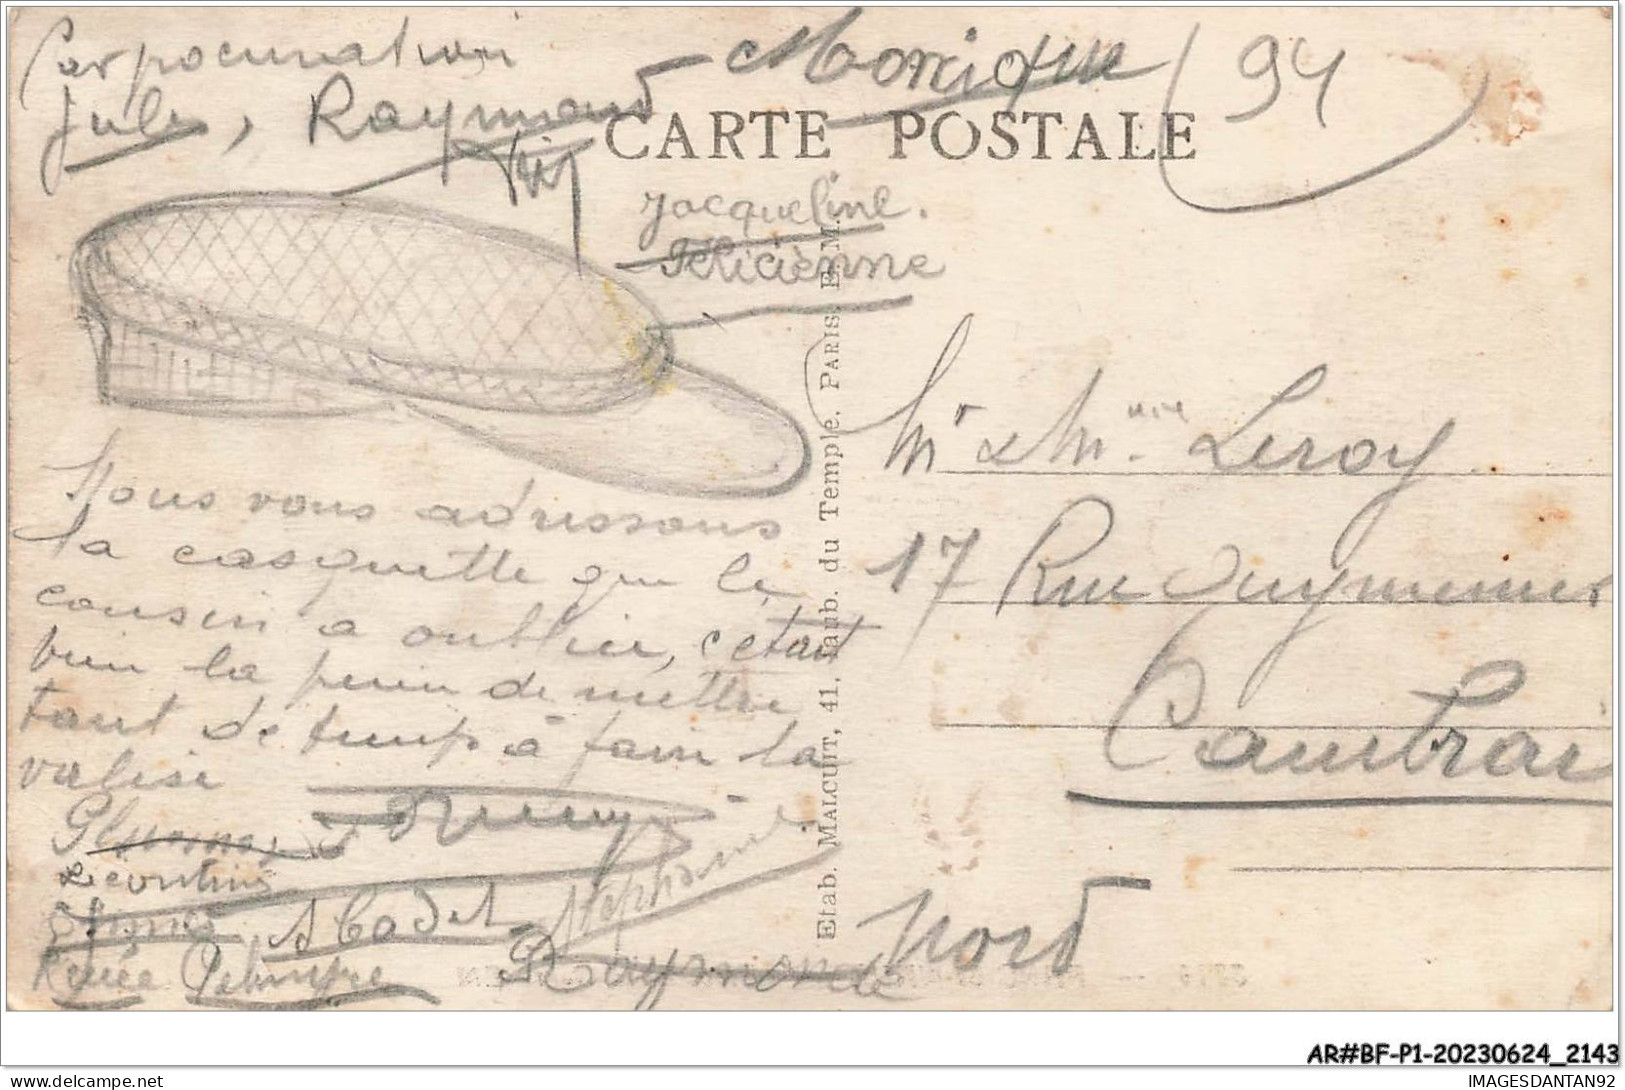 Jules, Raymond
Monique
94
CARTE POSTALE
Jacqueline.
Félicienne
Nous vous adressons
la casquette que le
cousin a oublié, c'était
bien la peine de mettre
tant de temps à faire la
valise
Léontine
A Cadet
Stéphanie
Renée
Raymonde
Etab. MALCUIT, 41, Faub. du Temple, PARIS. E. M.
Mr & Mme Leroy
17 Rue
Cambrai
Nord
AR#BF-P1-20230624_2143
delcampe.net
IMAGESDANTAN92